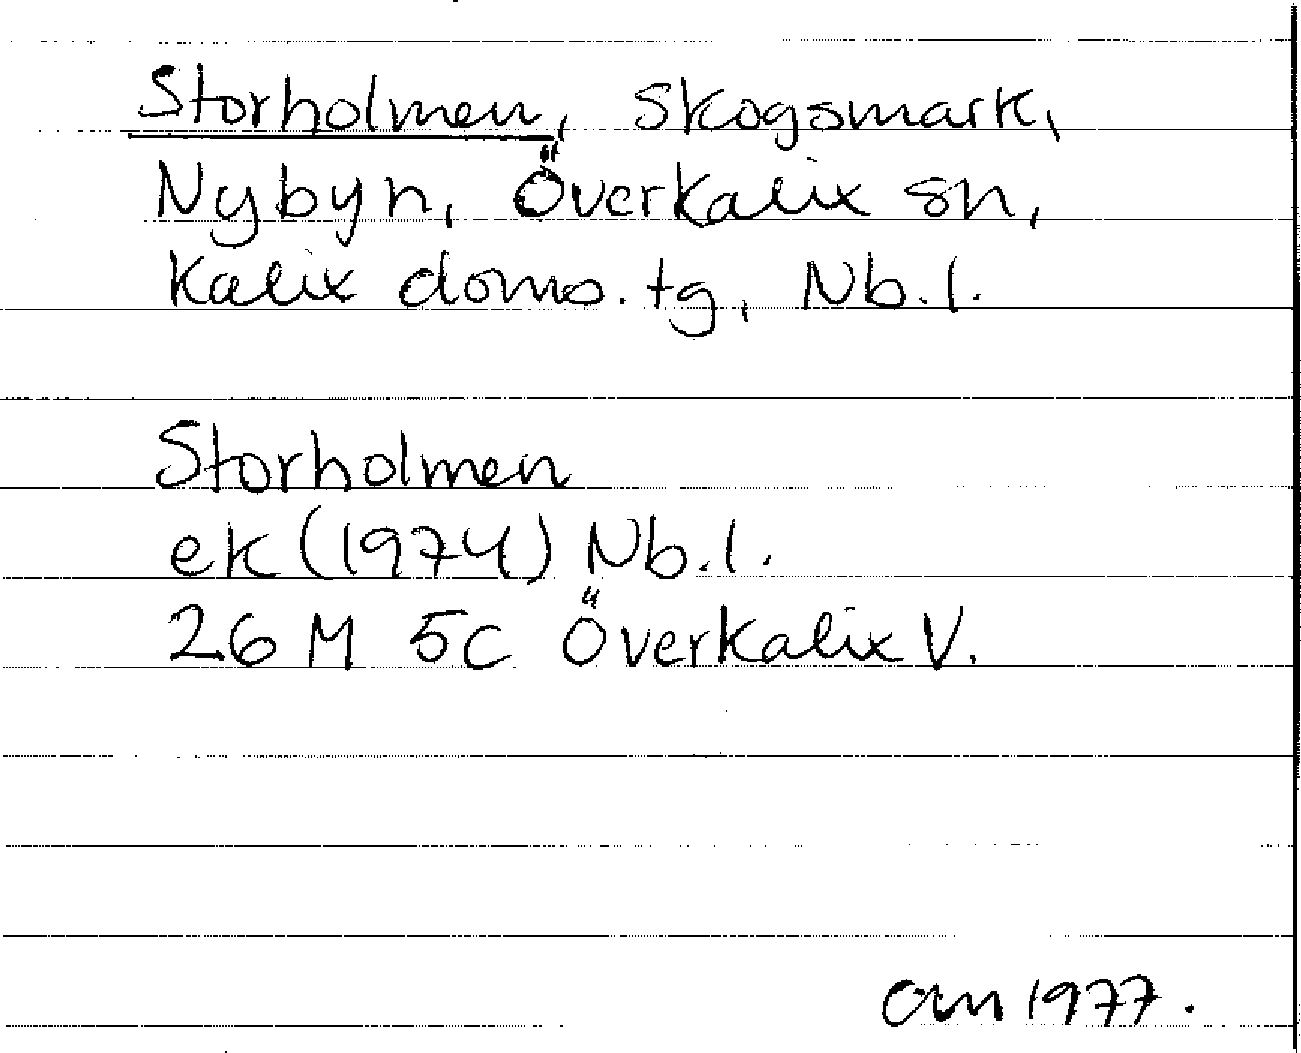 Storholmen, Skogsmark,
Nybyn, Överkalix sn,
Kalix doms. tg, Nb. l.
Storholmen
ek (1974) Nb. l.
26 M 5c Överkalix V.
1977.